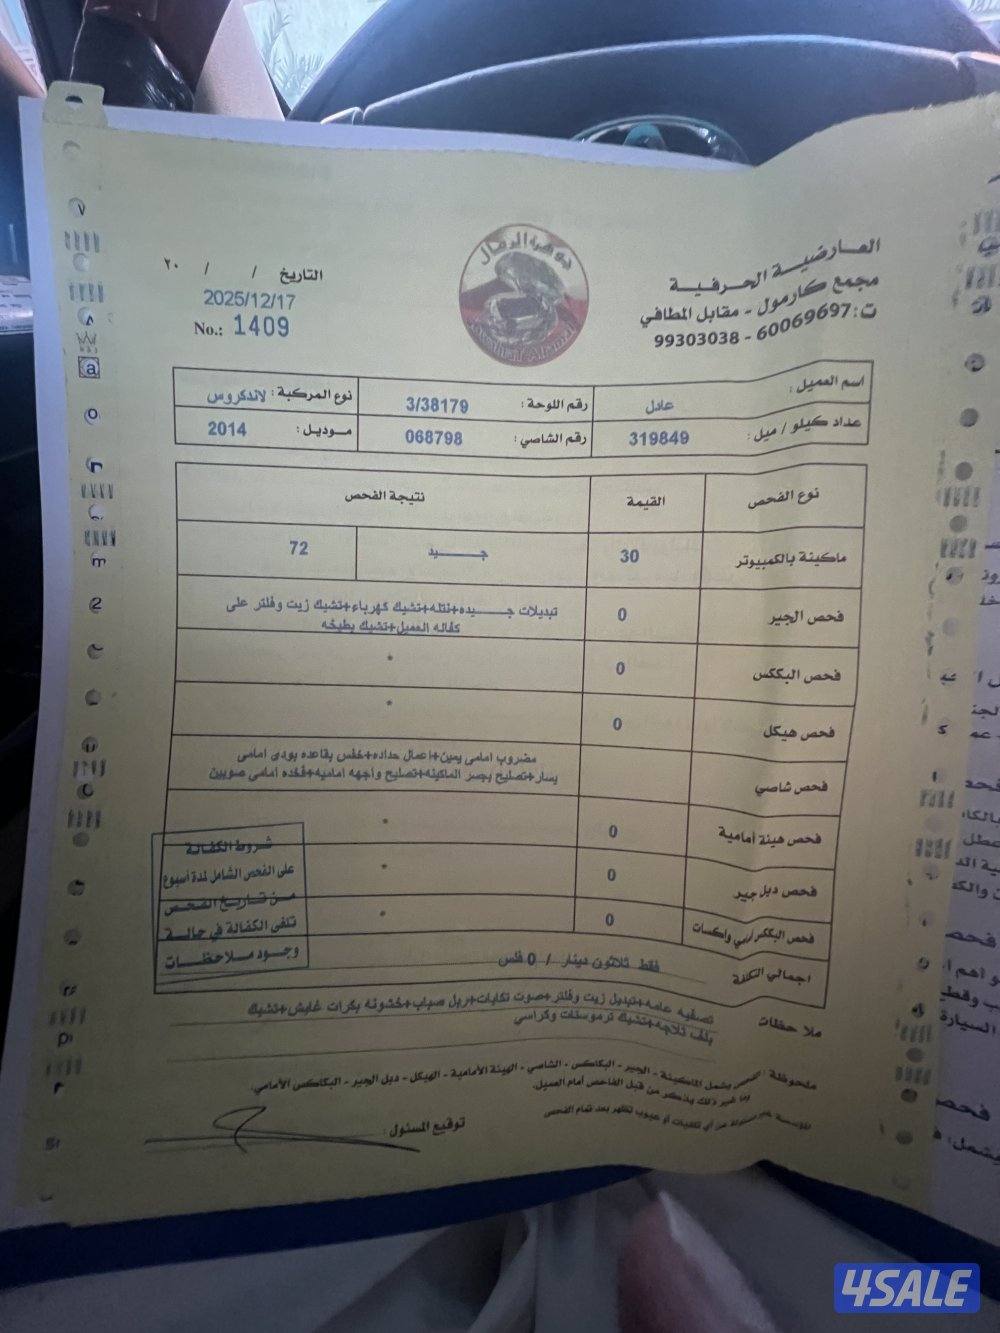 العارضية الحرفية
مجمع كارمول - مقابل المطافي
ت: 60069697 - 99303038
جوهرة الرمال
Jawharat Alremal
التاريخ / / ٢٠
2025/12/17
No.: 1409
اسم العميل: عادل
رقم اللوحة: 3/38179
نوع المركبة: لاندكروس
عداد كيلو / ميل: 319849
رقم الشاصي: 068798
موديل: 2014
نوع الفحص القيمة نتيجة الفحص
ماكينة بالكمبيوتر 30 جيد 72
فحص الجير 0 تبديلات جيده+نتله+تشيك كهرباء+تشيك زيت وفلتر على
كفاله العميل+تشيك بطيخه
فحص البككس 0 *
فحص هيكل 0 *
فحص شاصي مضروب امامى يمين+اعمال حداده+خفس بقاعده بودى امامى
يسار+تصليح بجسر الماكينه+تصليح واجهه اماميه+فخده امامي صوبين
فحص هيئة أمامية 0 *
فحص دبل جير 0 *
فحص البككز أربي واكسات 0 *
اجمالي التكلفة فقط ثلاثون دينار / 0 فلس
شروط الكفالة
على الفحص الشامل لمدة أسبوع
من تاريخ الفحص
تلغى الكفالة في حالة
وجود ملاحظات
ملاحظات تصفيه عامه+تبديل زيت وفلتر+صوت تكايات+ربل صباب+خشونه بكرات غايش+تشيك
بلف ثلاجه+تشيك ترموستات وكراسي
ملحوظة: الفحص يشمل الماكينة - الجير - البكاكس - الشاصي - الهيئة الأمامية - الهيكل - دبل الجير - البكاكس الأمامي.
وما غير ذلك يذكر من قبل الفاحص أمام العميل.
المؤسسة غير مسئولة عن أي تلفيات أو عيوب تظهر بعد تمام الفحص
توقيع المسئول:
4SALE